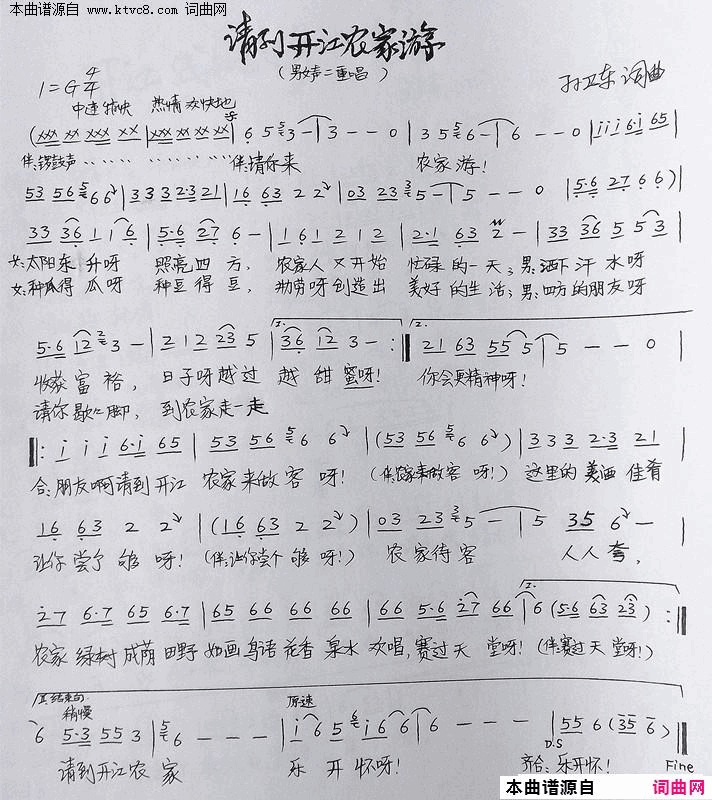 本曲谱源自
www.ktvc8.com 词曲网
请到开江农家游
(男女声二重唱)
1=G 4/4
中速稍快 热情欢快地
孙卫东 词曲
(xxx xxx xx xx | xxx xx xx xx | 6 5 5 3 - | 3 - - 0 | 3 5 5 6 - | 6 - - 0 | i i i 6·i 65 |
伴:锣鼓声 伴:请你来 农家游!
53 56 5 6 6 | 3 3 3 2·3 21 | 16 63 2 2 | 03 23 3 5 - | 5 - - 0 | 5·6 27 6 6 )
33 36 1 1 6 | 5·6 27 6 - | 1 6 1 2 1 2 | 2·1 63 2 - | 33 36 5 5 3 |
女:太阳东升呀 照亮四方, 农家人又开始 忙碌的一天; 男:洒下汗水呀
女:种瓜得瓜呀 种豆得豆, 勤劳呀创造出 美好的生活; 男:四方的朋友呀
5·6 12 2 3 - | 2 1 2 23 5 | 1. 36 12 3 - :|| 2. 21 63 55 5 | 5 - - 0 |
收获富裕, 日子呀越过 越甜蜜呀! 你会更精神呀!
请你歇歇脚, 到农家走一走
||: i i i 6·i 65 | 53 56 5 6 6 | (53 56 5 6 6) | 3 3 3 2·3 21 |
合:朋友啊请到开江 农家来做客呀! (伴:农家来做客呀!) 这里的美酒佳肴
16 63 2 2 | (16 63 2 2) | 03 23 3 5 - | 5 35 6 - |
让你尝个够呀! (伴:让你尝个够呀!) 农家待客 人人夸,
27 6·7 65 6·7 | 65 66 66 66 | 66 5·6 27 66 | 1. 6 (5·6 63 23) :||
农家绿树成荫田野如画鸟语花香泉水欢唱,赛过天堂呀! (伴赛过天堂呀!)
结束句
稍慢 原速
6 5·3 55 3 | 5 6 - - - | i 6 5 6 i 6 6 | 6 - - - | 55 6 (35 6) ||
D.S Fine
请到开江农家 乐开怀呀! 齐合:乐开怀!
本曲谱源自 词曲网